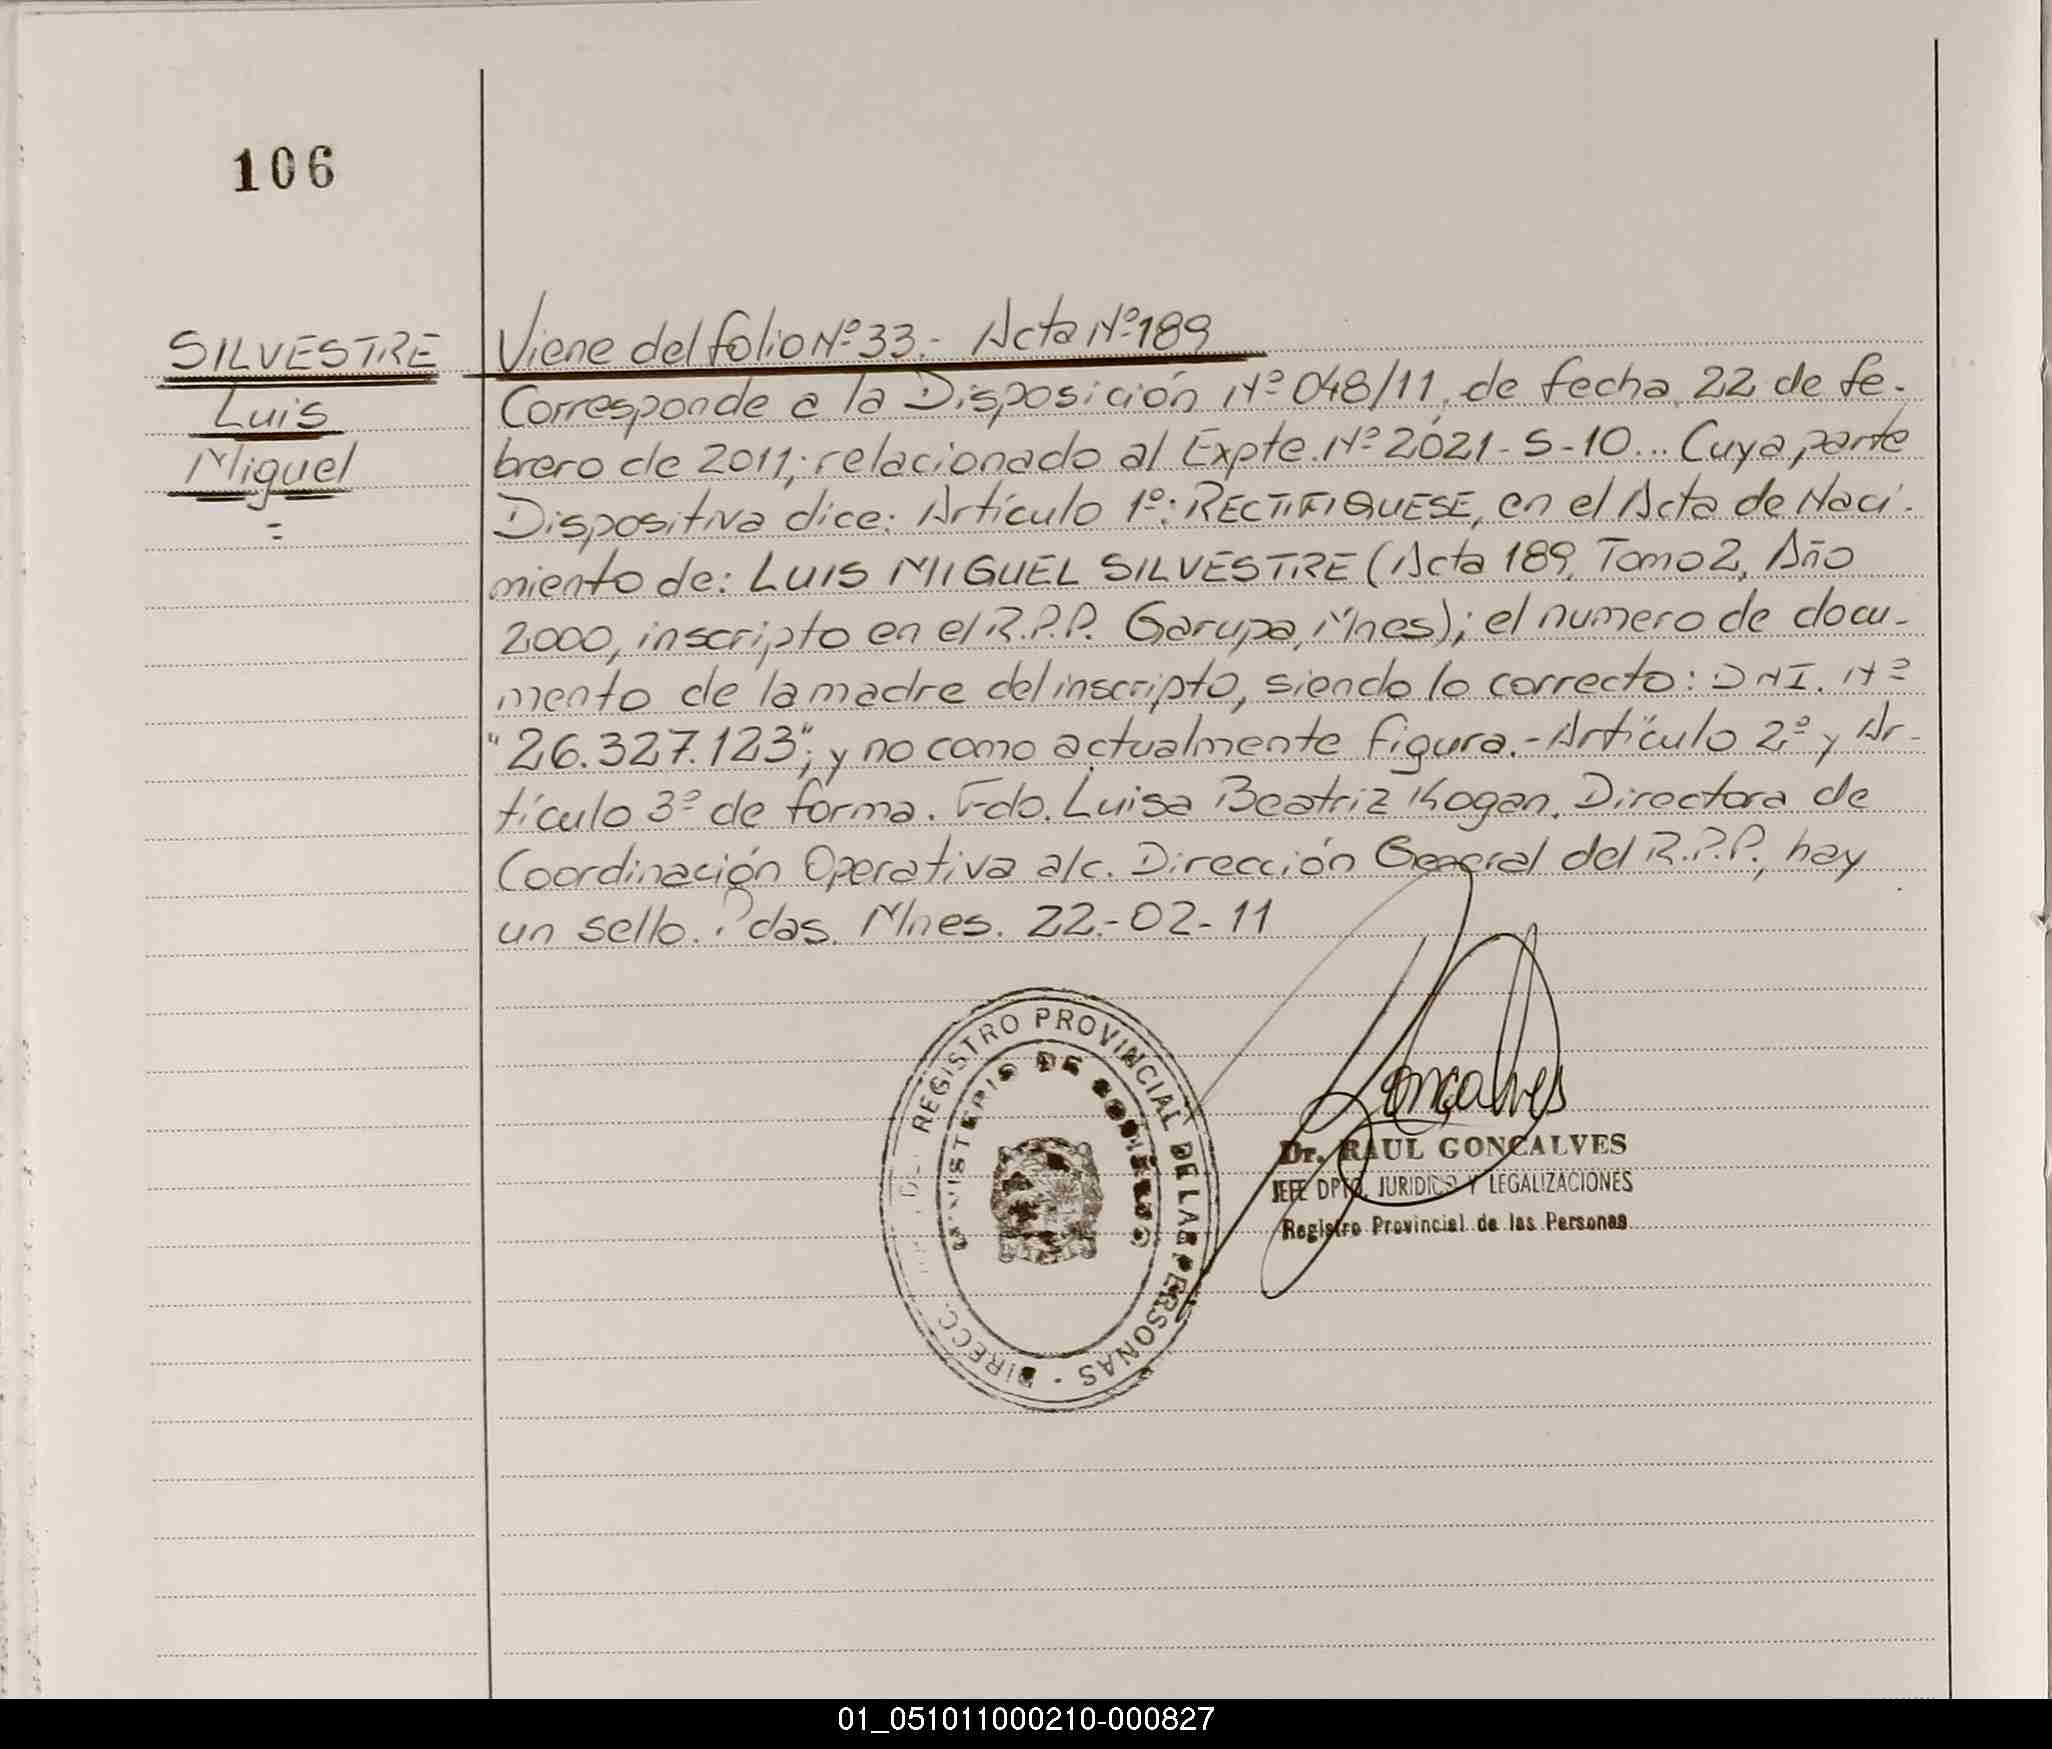 106
SILVESTRE
Luis
Miguel
=
Viene del folio Nº 33.- Acta Nº 189
Corresponde a la Disposición Nº 048/11, de fecha 22 de fe-
brero de 2011, relacionado al Expte. Nº 2021-S-10... Cuya parte
Dispositiva dice: Artículo 1º: RECTIFIQUESE, en el Acta de Naci-
miento de: LUIS MIGUEL SILVESTRE (Acta 189, Tomo 2, Año
2000, inscripto en el R.P.P. Garupa, Mnes); el numero de docu-
mento de la madre del inscripto, siendo lo correcto: DNI. Nº
"26.327.123"; y no como actualmente figura.- Artículo 2º y Ar-
tículo 3º de forma. Fdo. Luisa Beatriz Kogan. Directora de
Coordinación Operativa a/c. Dirección General del R.P.P., hay
un sello. Pdas. Mnes. 22-02-11
REGISTRO PROVINCIAL DE LAS PERSONAS - DIRECC.
MINISTERIO DE GOBIERNO
Goncalves
Dr. RAUL GONCALVES
JEFE DPTO. JURIDICO Y LEGALIZACIONES
Registro Provincial de las Personas
01_051011000210-000827